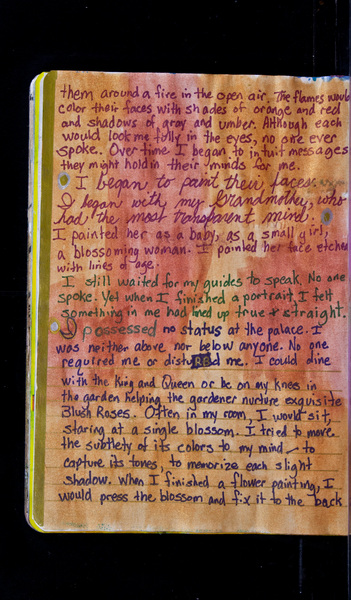 them around a fire in the open air. The flames would
color their faces with shades of orange and red
and shadows of gray and umber. Although each
would look me fully in the eyes, no one ever
spoke. Over time I began to intuit messages
they might hold in their minds for me.
I began to paint their faces.
I began with my Grandmother, who
had the most transparent mind.
I painted her as a baby, as a small girl,
a blossoming woman. I painted her face etched
with lines of age.
I still waited for my guides to speak. No one
spoke. Yet when I finished a portrait, I felt
something in me had lined up true & straight.
I possessed no status at the palace. I
was neither above nor below anyone. No one
required me or disturbed me. I could dine
with the King and Queen or be on my knees in
the garden helping the gardener nurture exquisite
Blush Roses. Often in my room, I would sit,
staring at a single blossom. I tried to move
the subtlety of its colors to my mind – to
capture its tones, to memorize each slight
shadow. When I finished a flower painting, I
would press the blossom and fix it to the back